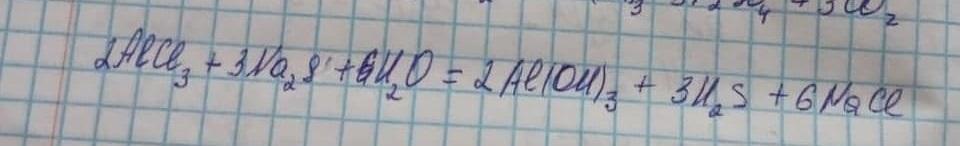 ₄ + 3CO₂
2AlCl₃ + 3Na₂S + 6H₂O = 2Al(OH)₃ + 3H₂S + 6NaCl